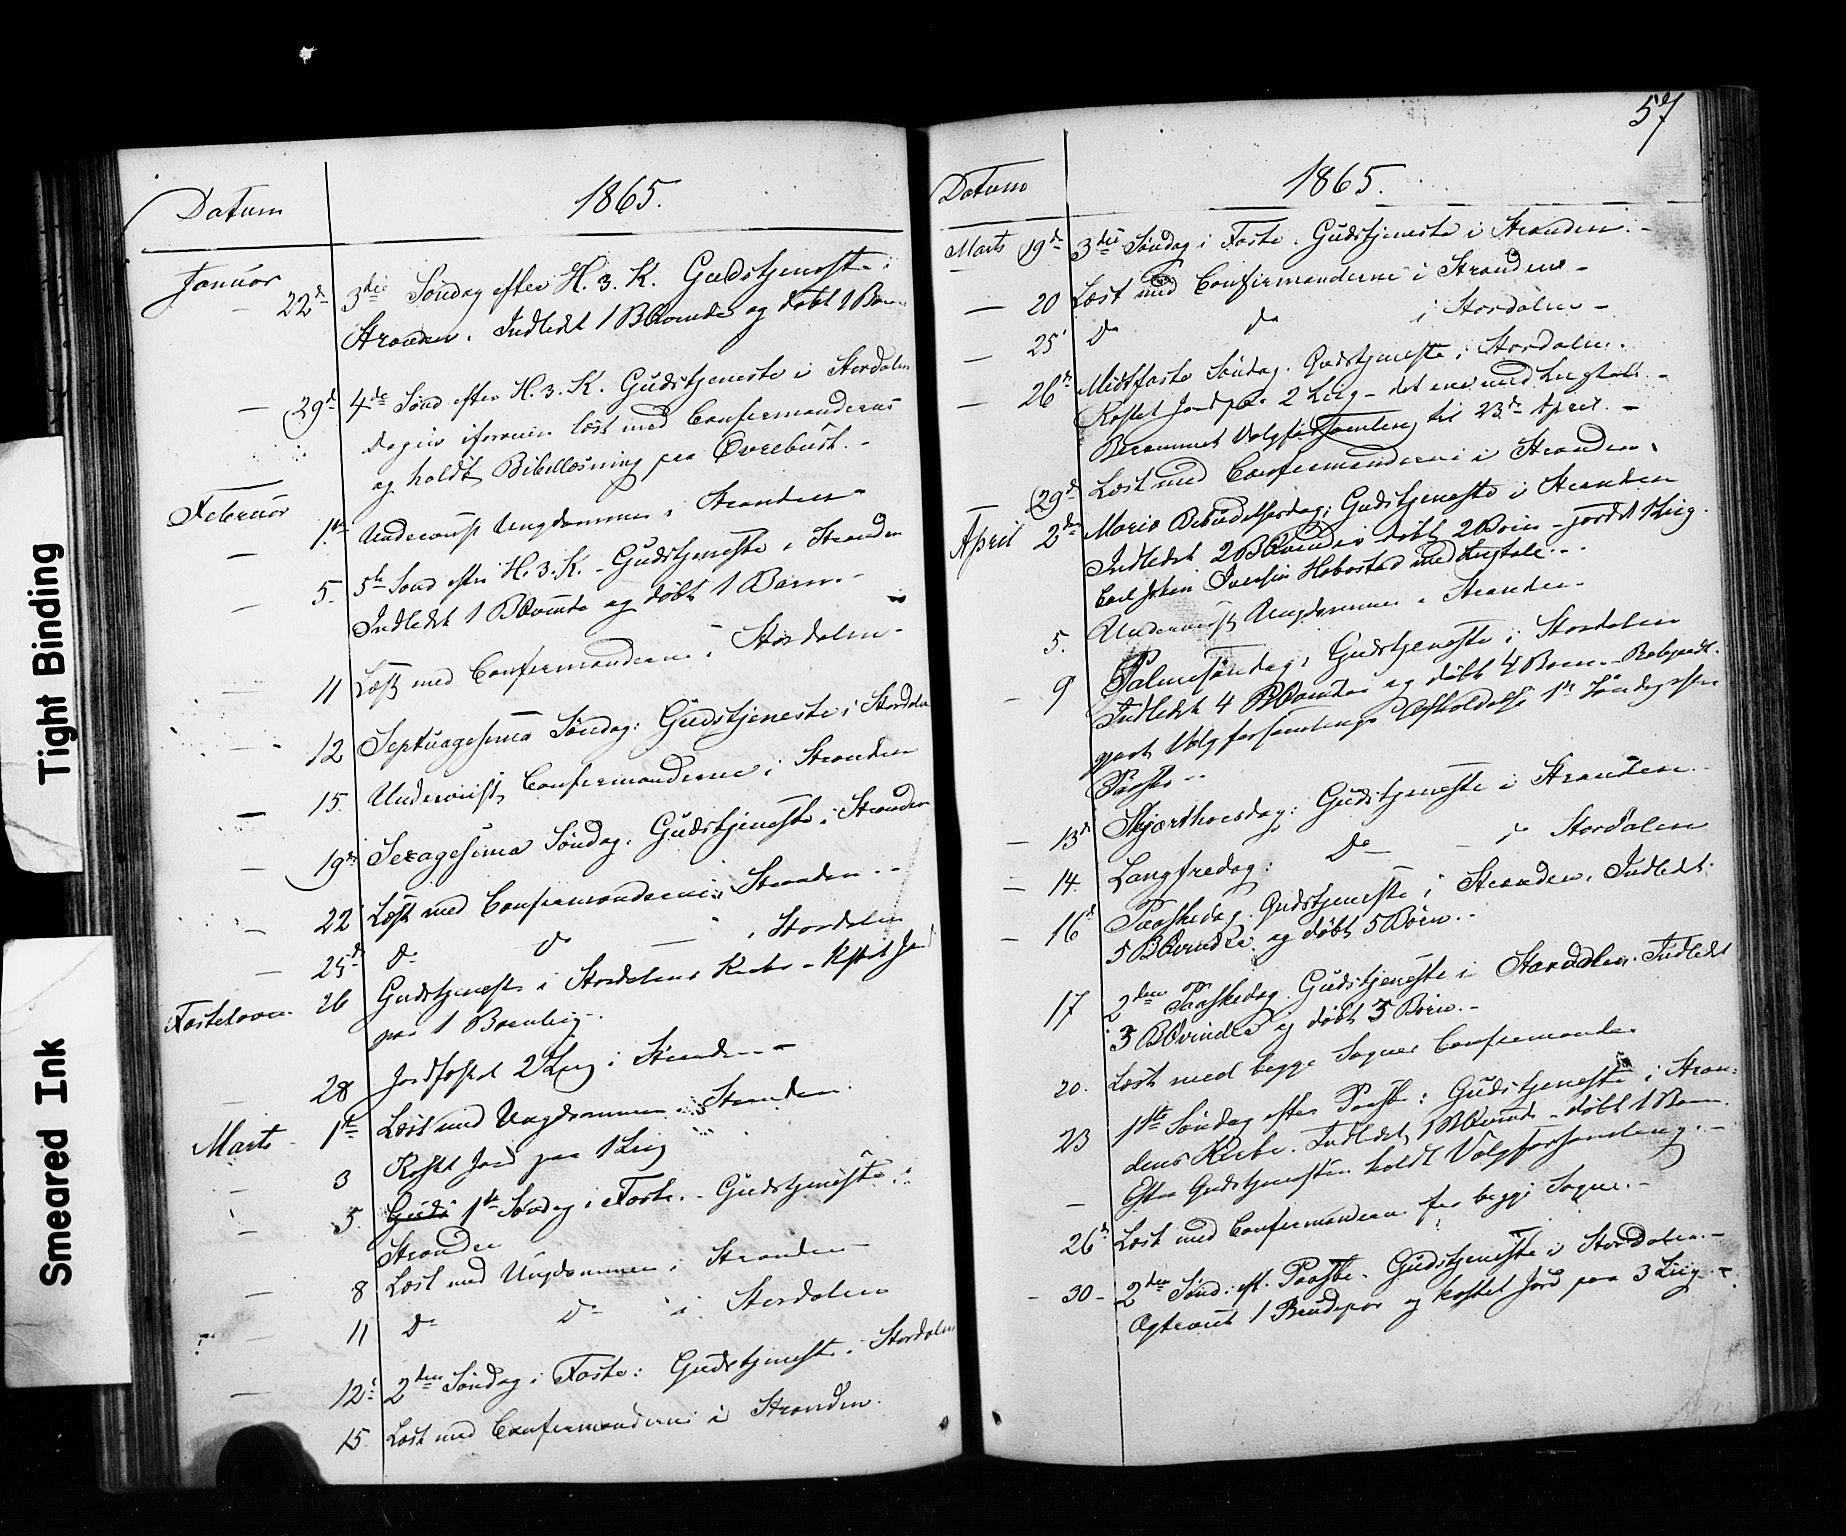 Tight Binding
Smeared Ink
Datum 1865.
Januar 22d 3die Søndag efter H. 3. K. Gudstjeneste i
Stranden. Indledt 1 BKvinde og døbt 1 Barn
29d 4de Sønd efter H. 3. K. Gudstjeneste i Stordalen
Dagen iforveien læst med Confirmanderne
og holdt Bibellæsning paa Øvrebust.
Februar 1ste Underviist Ungdommen i Stranden
5. 5te Sønd efter H. 3. K. Gudstjeneste i Stranden
Indledt 1 BKvinde og døbt 1 Barn.
11 Læst med Confirmanderne i Stordalen
12 Septuagesima Søndag: Gudstjeneste i Stordalen
15. Underviist Confirmanderne i Stranden
19de Sexagesima Søndag. Gudstjeneste i Stranden
22 Læst med Confirmanderne i Stranden
25de Do Do i Stordalen
Fastelavn 26 Gudstjeneste i Stordalens Kirke - Kastet Jord
paa 1 Barnliig.
28 Jordfæstet 2 Liig i Stranden
Marts 1ste Læst med Ungdommen i Stranden
3 Kastet Jord paa 1 Liig
5. Guds 1ste Søndag i Faste. Gudstjeneste i
Stranden
8 Læst med Ungdommen i Stranden
11 Do Do i Stordalen
12te 2den Søndag i Faste: Gudstjeneste i Stordalen
15. Læst med Confirmanderne i Stranden.
57
Datum 1865.
Marts 19de 3die Søndag i Faste. Gudstjeneste i Stranden.
20 Læst med Confirmanderne i Stranden
25 Do Do i Stordalen
26de Midfaste Søndag. Gudstjeneste i Stordalen.
Kastet Jord paa 2 Liig - det ene med Liigtale.
Berammet Valgforsamling til 23de April.
29d Læst med Confirmanderne i Stranden.
April 2den Maria Bebudelsesdag: Gudstjeneste i Stranden
Indledt 2 BKvinder døbt 2 Børn - jordet 1 Liig.
Carl Johan Iversen Hobostad med Liigtale.
5. Underviist Ungdommen i Stranden.
9 Palmesøndag. Gudstjeneste i Stordalen
Indledt 4 BKvinder og døbt 4 Børn. Bekjendt-
gjort Valgforsamlings Afholdelse 1ste Søndag efter
Paaske
13de Skjærthorsdag: Gudstjeneste i Stranden.
14. Langfredag: Do i Stordalen
16d Paaskedag. Gudstjeneste i Stranden. Indledt
5 BKvinder og døbt 5 Børn.
17 2den Paaskedag. Gudstjeneste i Stordalen. Indledt
3 BKvinder og døbt 3 Børn.
20. Læst med begge Sognes Confirmander
23 1ste Søndag efter Paaske: Gudstjeneste i Stran-
dens Kirke. Indledt 1 BKvinde - døbt 1 Barn.
Efter Gudstjenesten holdt Valgforsamling.
26d Læst med Confirmanderne for begge Sogne.
30 2den Sønd. eft. Paaske. Gudstjeneste i Stordalen.
Ægteviet 1 Brudepar og kastet Jord paa 3 Liig.